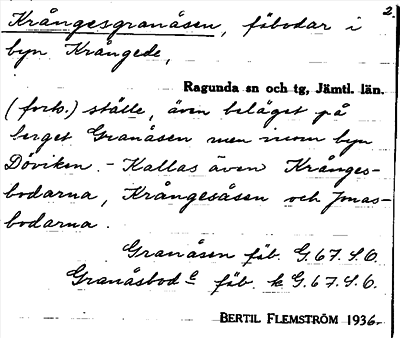 2.
Krångesgranåsen, fäbodar i
byn Krångede,
Ragunda sn och tg, Jämtl. län.
(forts.) ställe, även beläget på
berget Granåsen men inom byn
Döviken. - Kallas även Krånges-
bodarna, Krångesåsen och Jonas-
bodarna.
Granåsen fäb. G.67.S.O.
Granåsbodᵉ fäb. k G.67.S.O.
BERTIL FLEMSTRÖM 1936.